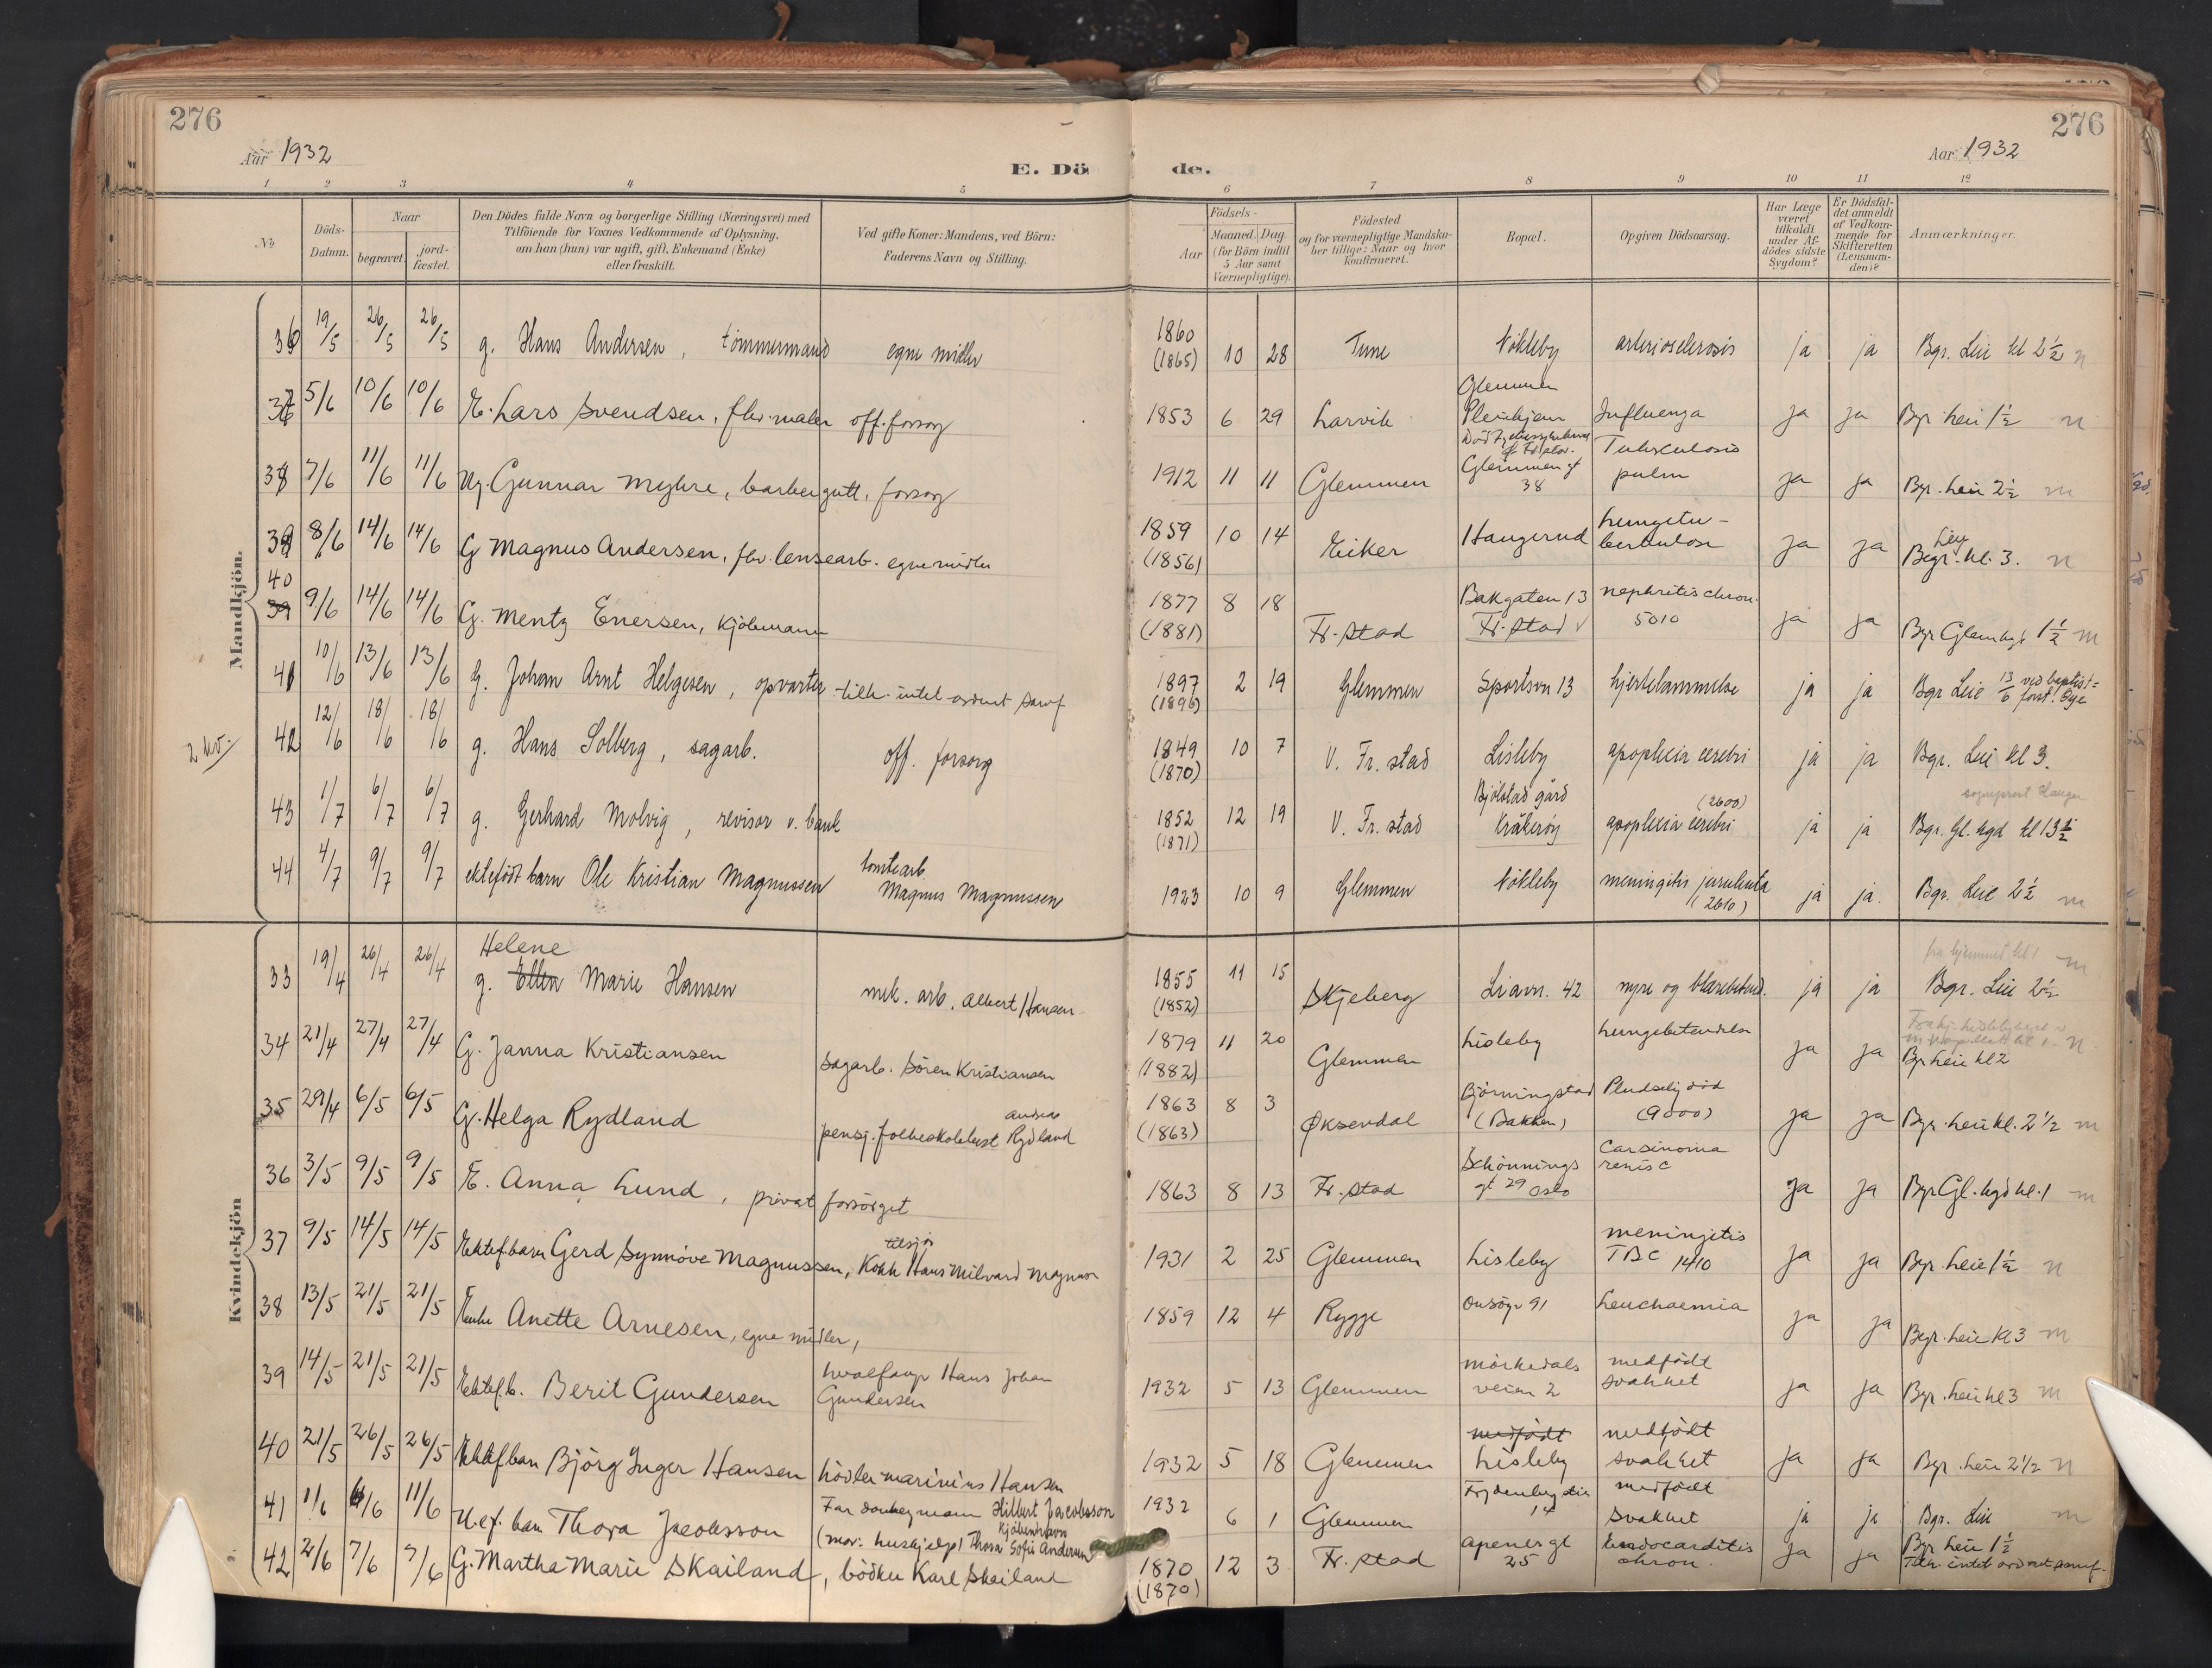 276
276
Aar 1932
Aar 1932
E. Dö de.
1 2 3 4 5 6 7 8 9 10 11 12
No
Döds-Datum.
Naar
begravet.
jord-fæstet.
Den Dödes fulde Navn og borgerlige Stilling (Næringsvei) med
Tilföiende for Voxnes Vedkommende af Oplysning,
om han (hun) var ugift, gift, Enkemand (Enke)
eller fraskilt.
Ved gifte Koner: Mandens, ved Börn:
Faderens Navn og Stilling.
Födsels-
Aar
Maaned. Dag
(for Börn indtil
5 Aar samt
Værnepligtige).
Födested
og for værnepligtige Mandska-
ber tillige: Naar og hvor
konfirmeret.
Bopæl.
Opgiven Dödsaarsag.
Har Læge
været
tilkaldt
under Af-
dödes sidste
Sygdom?
Er Dödsfal-
det anmeldt
af Vedkom-
mende for
Skifteretten
(Lensman-
den)?
Anmærkninger.
Mandkjön.
36 19/5 26/5 26/5 g. Hans Andersen, tömmermand egne midler 1860 (1865) 10 28 Tune Nökleby arteriosclerosis ja ja Bgr. Leie kl 2 1/2 n
37 5/6 10/6 10/6 E. Lars Svendsen, fhv. maler off. forsorg 1853 6 29 Larvik Glemmen Pleiehjem Influenza ja ja Bgr. Leie 1 1/2 n
38 7/6 11/6 11/6 Ug. Gunnar Myhre, barbergutt, forsorg 1912 11 11 Glemmen Glemmen gt 38 Tuberculosis pulm ja ja Bgr. Leie 2 1/2 m
39 8/6 14/6 14/6 G Magnus Andersen, fhv. lensearb. egne midler 1859 (1856) 10 14 Eiker Haugerud Lungetu-berkulose ja ja Leie Begr. kl. 3. n
40 39 9/6 14/6 14/6 G. Mentz Enersen, kjöbmann 1877 (1881) 8 18 Fr. stad Bakgaten 13 Fr. stad nephritis chron. 5010 ja ja Bgr Glem kgd 1 1/2 m
41 10/6 13/6 13/6 g. Johan Arnt Helgesen, opvarter tilh. intet ordnet samf 1897 (1896) 2 19 Glemmen Sportsvn 13 hjertelammelse ja ja Bgr Leie 13/6 ved baptist= forst. Öye
2 kv. 42 12/6 18/6 18/6 g. Hans Solberg, sagarb. off. forsorg 1849 (1870) 10 7 V. Fr. stad Lisleby apoplexia cerebri ja ja Bgr. Leie kl 3.
43 1/7 6/7 6/7 g. Gerhard Molvig, revisor v. bank 1852 (1871) 12 19 V. Fr. stad Bjölstad gård Kråkeröy (2600) apoplexia cerebri ja ja sogneprest Hauger Bgr. Gl. kgd kl 13 1/2
44 4/7 9/7 9/7 ektefödt barn Ole Kristian Magnussen tomtearb Magnus Magnussen 1923 10 9 Glemmen Nökleby meningitis purulenta (2610) ja ja. Bgr. Leie 2 1/2 m
Kvindekjön
33 19/4 26/4 26/4 Helene g. Ellen Marie Hansen mek. arb. Albert Hansen 1855 (1852) 11 15 Skjeberg Liavn. 42 nyre og blærebetend. ja ja fra hjemmet kl 1 Bgr. Leie 2 1/2 m
34 21/4 27/4 27/4 G. Janna Kristiansen sagarb. Sören Kristiansen 1879 (1882) 11 20 Glemmen Lisleby lungebetendelse ja ja Bgr Leie kl 2 n
35 29/4 6/5 6/5 G. Helga Rydland pensj. folkeskolebest Andreas Rydland 1863 (1863) 8 3 Öksendal Björningstad (Bakken) Pludselig död (9000) ja ja Bgr. Leie kl. 2 1/2 m
36 3/5 9/5 9/5 E. Anna Lund, privat forsörget 1863 8 13 Fr. stad Schönnings gt 29 Oslo Carsinoma renis c ja ja Bgr Gl. kgd kl. 1 m
37 9/5 14/5 14/5 Ektef. barn Gerd Synnöve Magnussen, kokk tilsjös Hans Milvard Magnussen 1931 2 25 Glemmen Lisleby meningitis TBC 1410 ja ja Bgr. Leie 1 1/2 n
38 13/5 21/5 21/5 Enke Anette Arnesen, egne midler, 1859 12 4 Rygge Onsöyv 91 Leuchaemia ja ja Begr. Leie kl 3 m
39 14/5 21/5 21/5 Ektef. b. Berit Gundersen hvalfangr Hans Johan Gundersen 1932 5 13 Glemmen Mörkedals veien 2 medfödt svakhet ja ja Bgr. Leie kl 3 m
40 21/5 26/5 26/5 Ektef. barn Björg Inger Hansen bödker Marinius Hansen 1932 5 18 Glemmen medfödt Lisleby medfödt svakhet ja ja Bgr. Leie 2 1/2 n
41 1/6 11/6 11/6 U. ef. barn Thora Jacobsson Far donkeymann Hilbert Jacobsson Kjöbenhavn (mor: hushjelp) Thora Sofie Andersen 1932 6 1 Glemmen 14 medfödt svakhet ja ja Bgr. Leie m
42 2/6 7/6 7/6 G. Martha Marie Skailand, bödker Karl Skailand 1870 (1870) 12 3 Fr. stad Apenergt 25 Endocarditis chron. ja ja Bgr Leie 1 1/2 Tilh. intet ordnet samf.